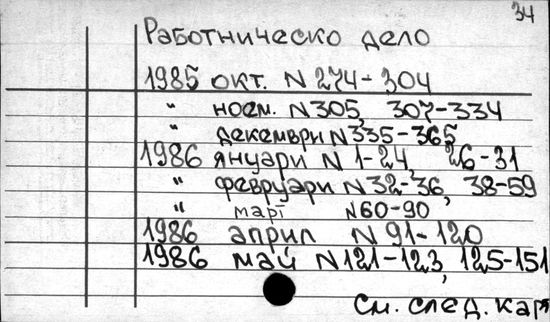 34
Работническо дело
1985 окт. N 274-304
" ноем. N 305, 307-334
" декември N 335-365
1986 януари N 1-24, 26-31
" февруари N 32-36, 38-59
" март N 60-90
1986 април N 91-120
1986 май N 121-123, 125-151
См. след. карт